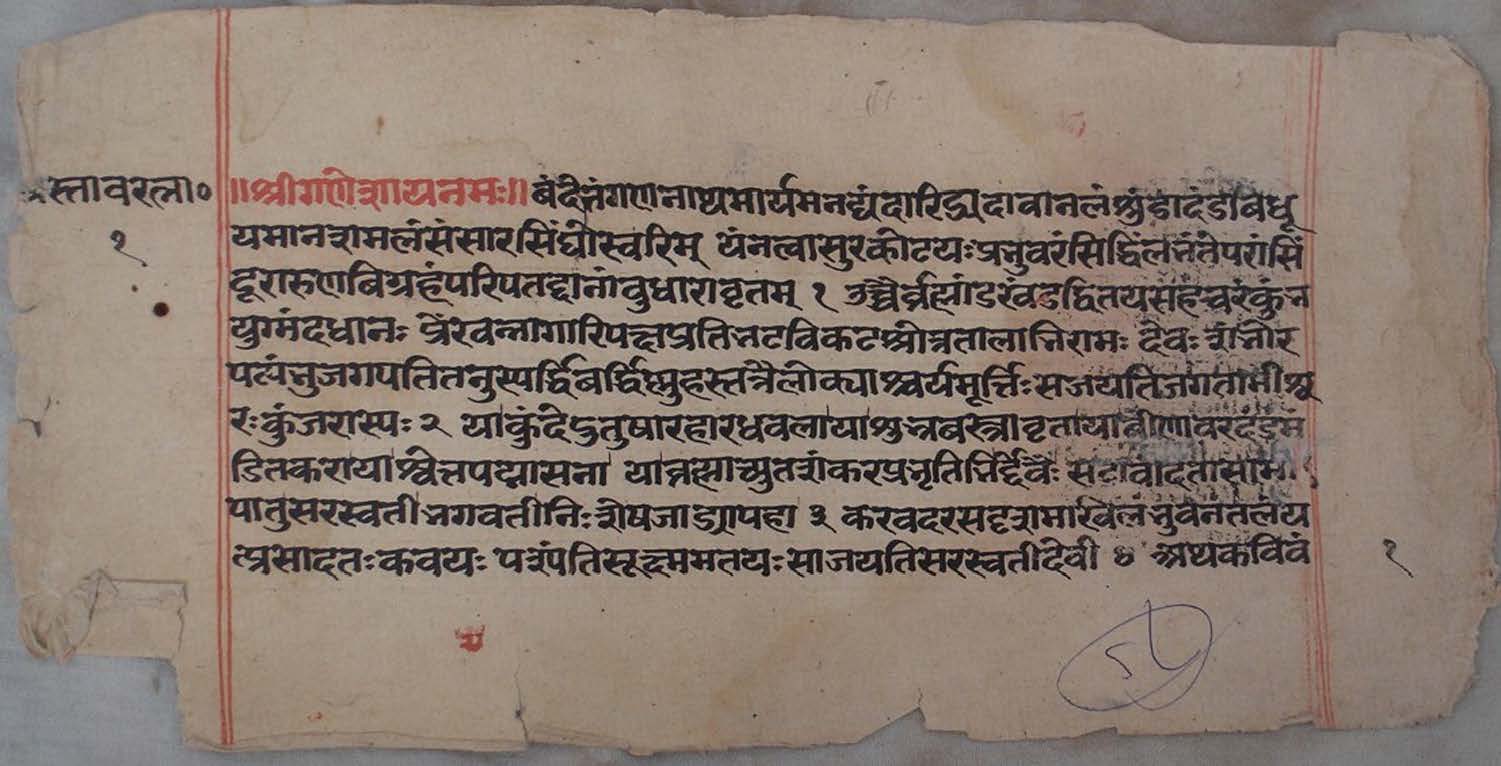 स्तावरत्ना० ॥श्रीगणेशायनमः॥ बंदेतंगणनाथमार्यमनघ्यंदारिद्र्यदावानलंशुंडादंडविधू
१ यमानशमलंसंसारसिंधोस्तरिम् यंनत्वासुरकोटयःप्रभुवरंसिद्धिंलभंतेपरांसिं
दूरारुणबिग्रहंपरिपतद्दानांबुधारावृतम् १ उच्चैर्ब्रह्मांडखंडद्वितयसहचरंकुंभ
युग्मंदधानः प्रेंखन्नागारिपक्षप्रतिभटविकटश्रोत्रतालाभिरामः देवः शंभोर
पत्यंभुजगपतितनुस्पर्द्धिबर्द्धिष्णुहस्तस्त्रैलोक्याश्चर्यमूर्त्तिःसजयतिजगतामीश्व
रःकुंजरास्यः २ याकुंदेंदुतुषारहारधवलायाशुभ्रबस्त्रावृतायाबीणावरदंडमं
डितकरायाश्वेतपद्मासना याब्रह्माच्युतशंकरप्रभृतिभिर्द्देवैः सदावंदितासामां
पातुसरस्वतीभगवतीनिःशेषजाड्यापहा ३ करवदरसदृशमखिलंभुवनतलंय
त्प्रसादतःकवयः पश्यंतिसूक्ष्ममतयःसाजयतिसरस्वतीदेवी ४ अथकविवं
१